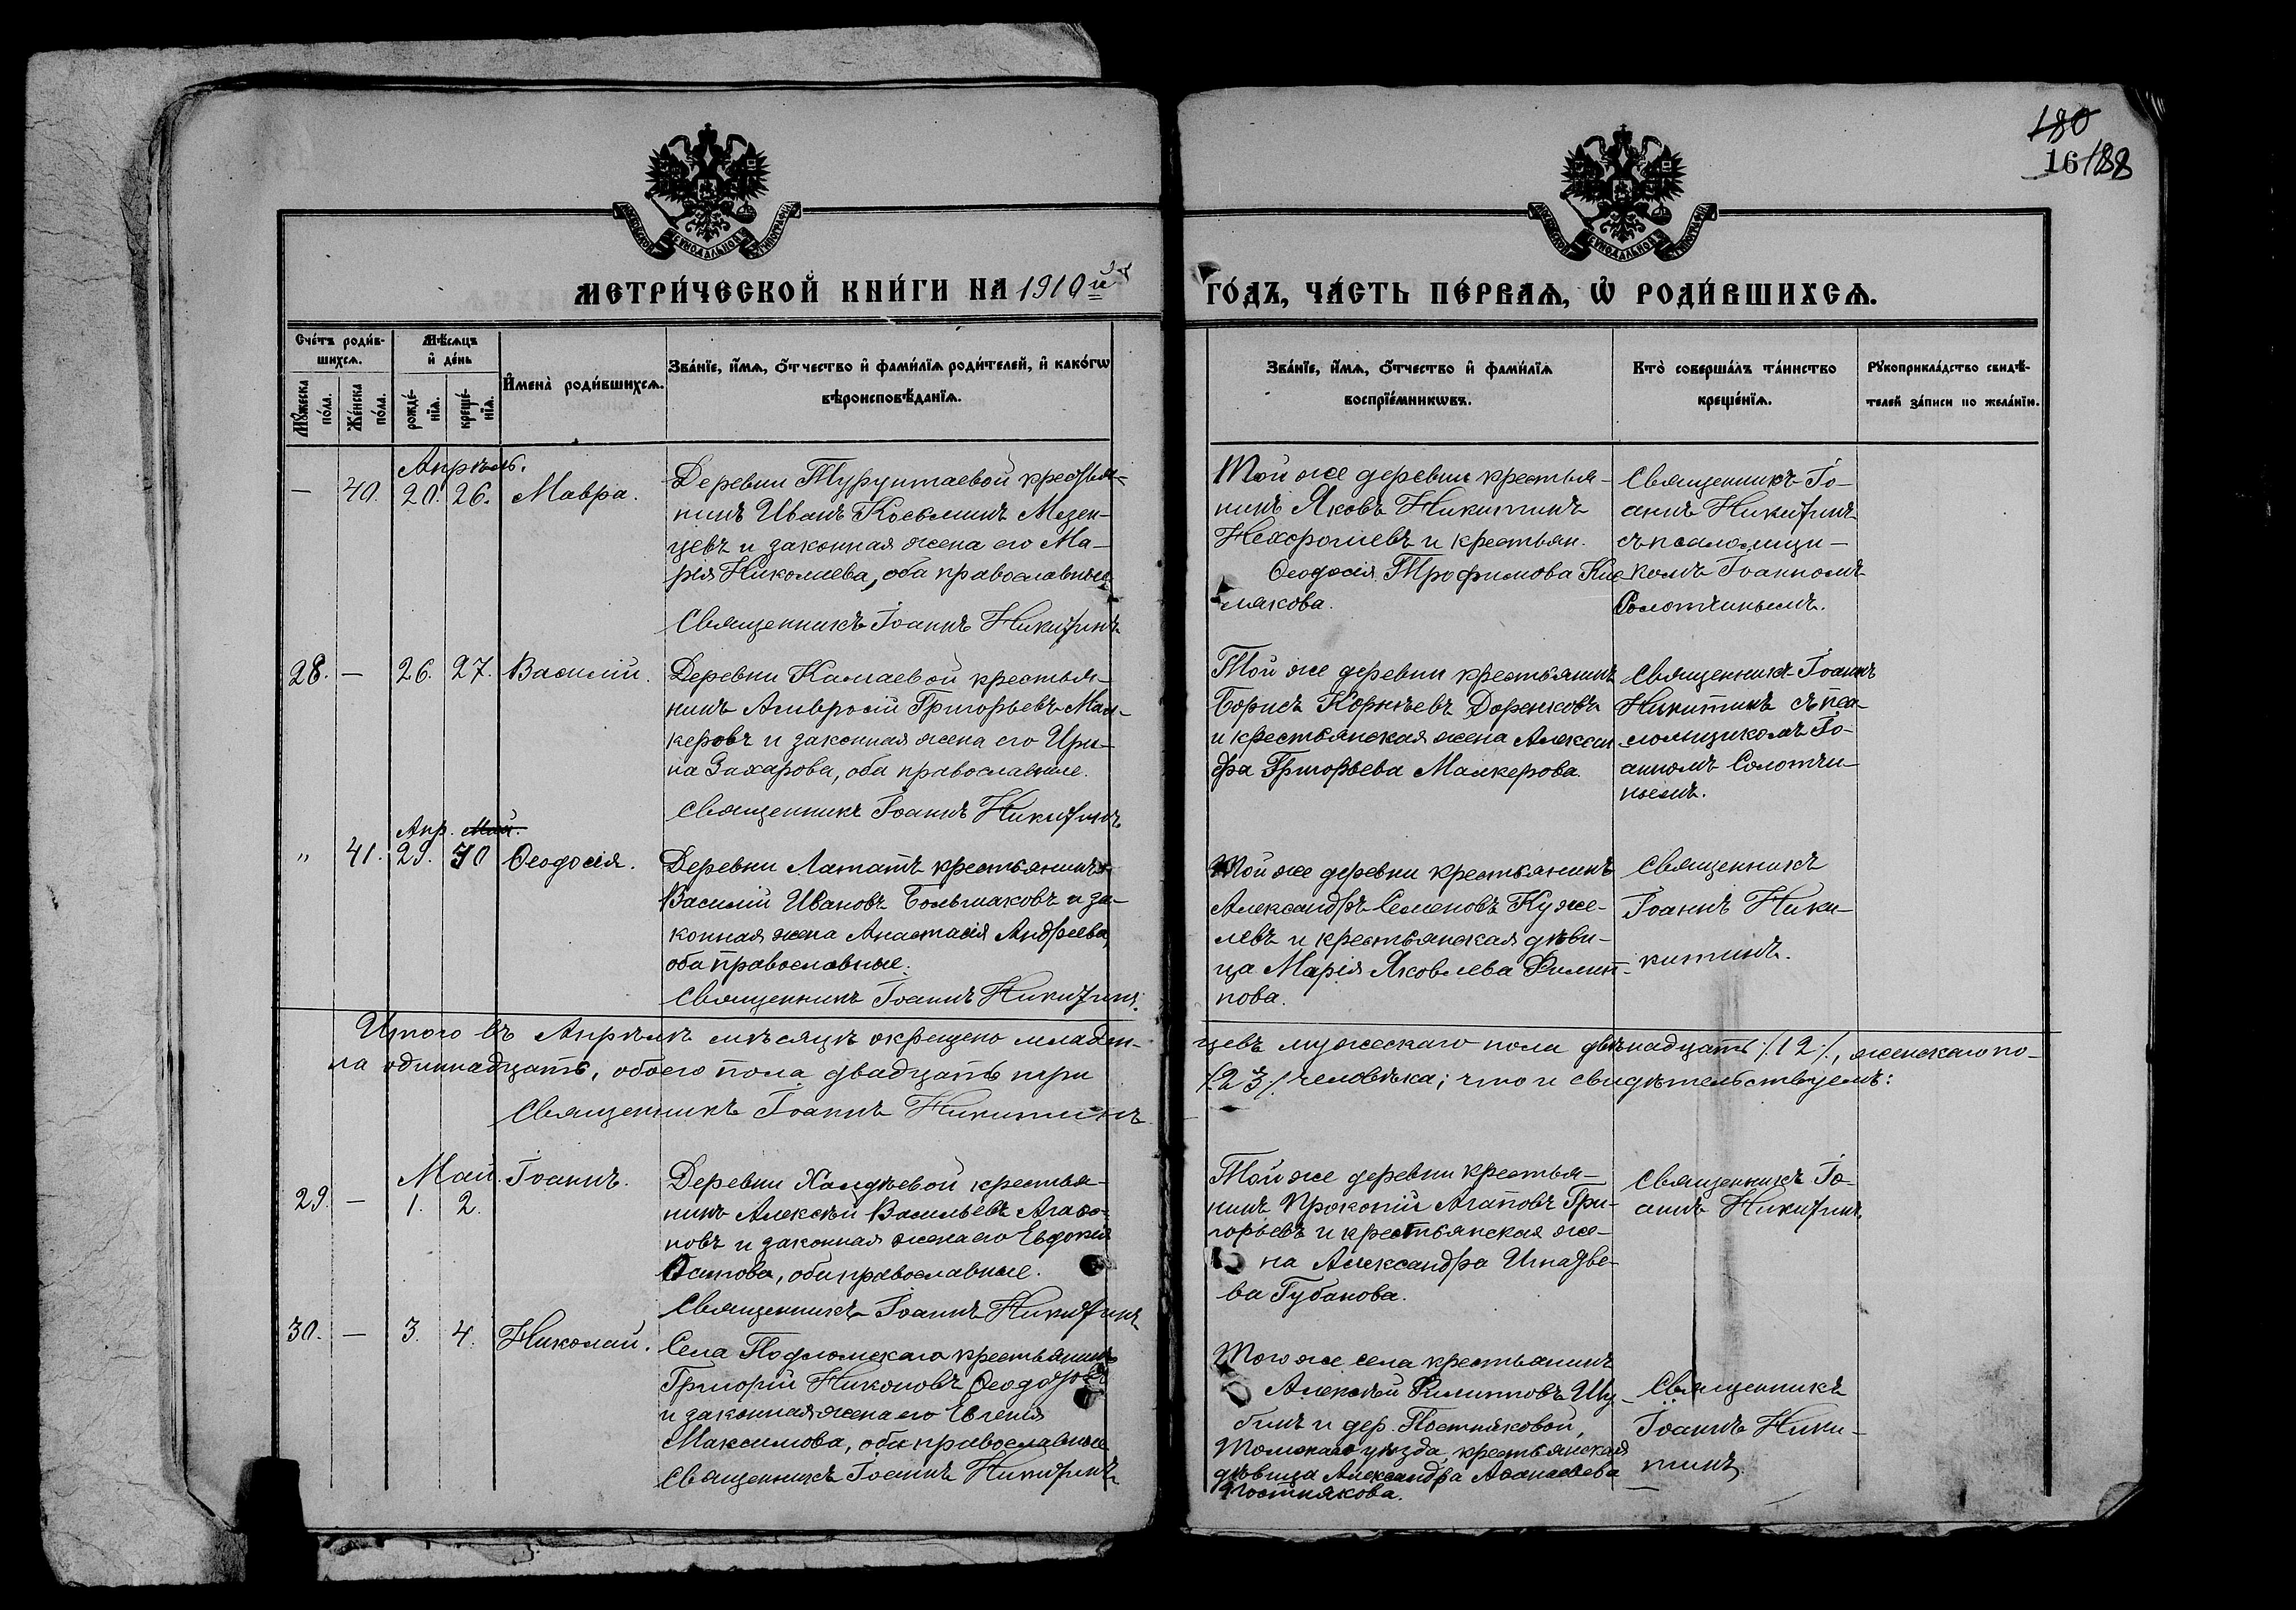 180
16 188
МЕТРИ́ЧЕСКОЙ КНИ́ГИ НА 1910й
ГО́ДЪ, ЧА́СТЬ ПЕ́РВАѦ, Ѽ РОДИ́ВШИХСѦ.
Сче́тъ роди́в-
шихсѧ.
Мꙋ́жеска по́ла.
Же́нска по́ла.
Мѣ́сѧцъ
и҆ де́нь
рожде́-
нїѧ.
креще́-
нїѧ.
И҆мена̀ роди́вшихсѧ.
Зва́нїе, и҆́мѧ, ѻ҆́тчество и҆ фами́лїѧ роди́телей, и҆ како́гѡ
вѣроисповѣ́данїѧ.
Зва́нїе, и҆́мѧ, ѻ҆́тчество и҆ фами́лїѧ
воспрїе́мникѡвъ.
Кто̀ соверша́лъ та́инство
креще́нїѧ.
Рꙋкоприкла́дство свидѣ́-
телей за́писи по жела́нїю.
Апрѣль.
— 40. 20. 26. Мавра.
Деревни Турунтаевой крестья-
нинъ Иванъ Косьминъ Мезен-
цевъ и законная жена его Ма-
рія Николаева, оба православные
Священникъ Іоаннъ Никитинъ
Той же деревни крестья-
нинъ Яковъ Никитинъ
Нехорошевъ и крестьян.
Ѳеодосія Трофимова Кис-
лякова.
Священникъ Іо-
аннъ Никитинъ
съ псаломщи-
комъ Іоанномъ
Солотчинымъ.
28. — 26. 27. Василій.
Деревни Камаевой крестья-
нинъ Амвросій Григорьевъ Мам-
керовъ и законная жена его Ири-
на Захарова, оба православные.
Священникъ Іоаннъ Никитинъ
Той же деревни крестьянинъ
Борисъ Корнѣевъ Доренковъ
и крестьянская жена Алексан-
дра Григорьева Мамкерова.
Священникъ Іоаннъ
Никитинъ съ пса-
ломщикомъ Іо-
анномъ Солотчи-
нымъ.
Апр. Май.
" 41. 29. 30 Ѳеодосія.
Деревни Лататъ крестьянинъ
Василій Ивановъ Большаковъ и за-
конная жена Анастасія Андреева,
оба православные.
Священникъ Іоаннъ Никитинъ.
Той же деревни крестьянинъ
Александръ Семеновъ Куже-
левъ и крестьянская дѣви-
ца Марія Яковлева Филип-
пова.
Священникъ
Іоаннъ Ники-
китинъ.
Итого въ Апрѣлѣ мѣсяцѣ окрещено младен-
цевъ мужескаго пола двѣнадцать /:12:/, женскаго по-
ла одиннадцать, обоего пола двадцать три
/:23:/ человѣка; что и свидѣтельствуемъ:
Священникъ Іоаннъ Никитинъ
Май. Іоаннъ.
29. — 1. 2.
Деревни Халдѣевой крестья-
нинъ Алексѣй Васильевъ Агафо-
новъ и законная жена его Евдокія
Осипова, оба православные.
Священникъ Іоаннъ Никитинъ
Той же деревни крестья-
нинъ Прокопій Агаповъ Гри-
горьевъ и крестьянская же-
на Александра Игнатье-
ва Губанова.
Священникъ Іо-
аннъ Никитинъ.
30. — 3. 4. Николай.
Села Подломскаго крестьянинъ
Григорій Никоновъ Ѳеодоровъ
и законная жена его Евгенія
Максимова, оба православные
Священникъ Іоаннъ Никитинъ
Того же села крестьянинъ
Алексѣй Филипповъ Шу-
бинъ и дер. Постниковой,
Томскаго уѣзда, крестьянская
дѣвица Александра Аѳанасьева
Постникова.
Священникъ
Іоаннъ Ники-
тинъ